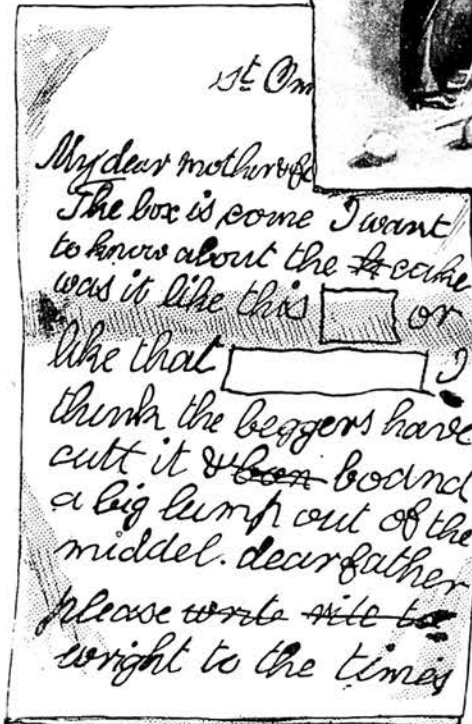 St Om
My dear mother & fa
The box is come I want
to know about the cake
was it like this or
like that I
think the beggers have
cutt it & boand
a big lump out of the
middel. dear father
please write rite to
wright to the times